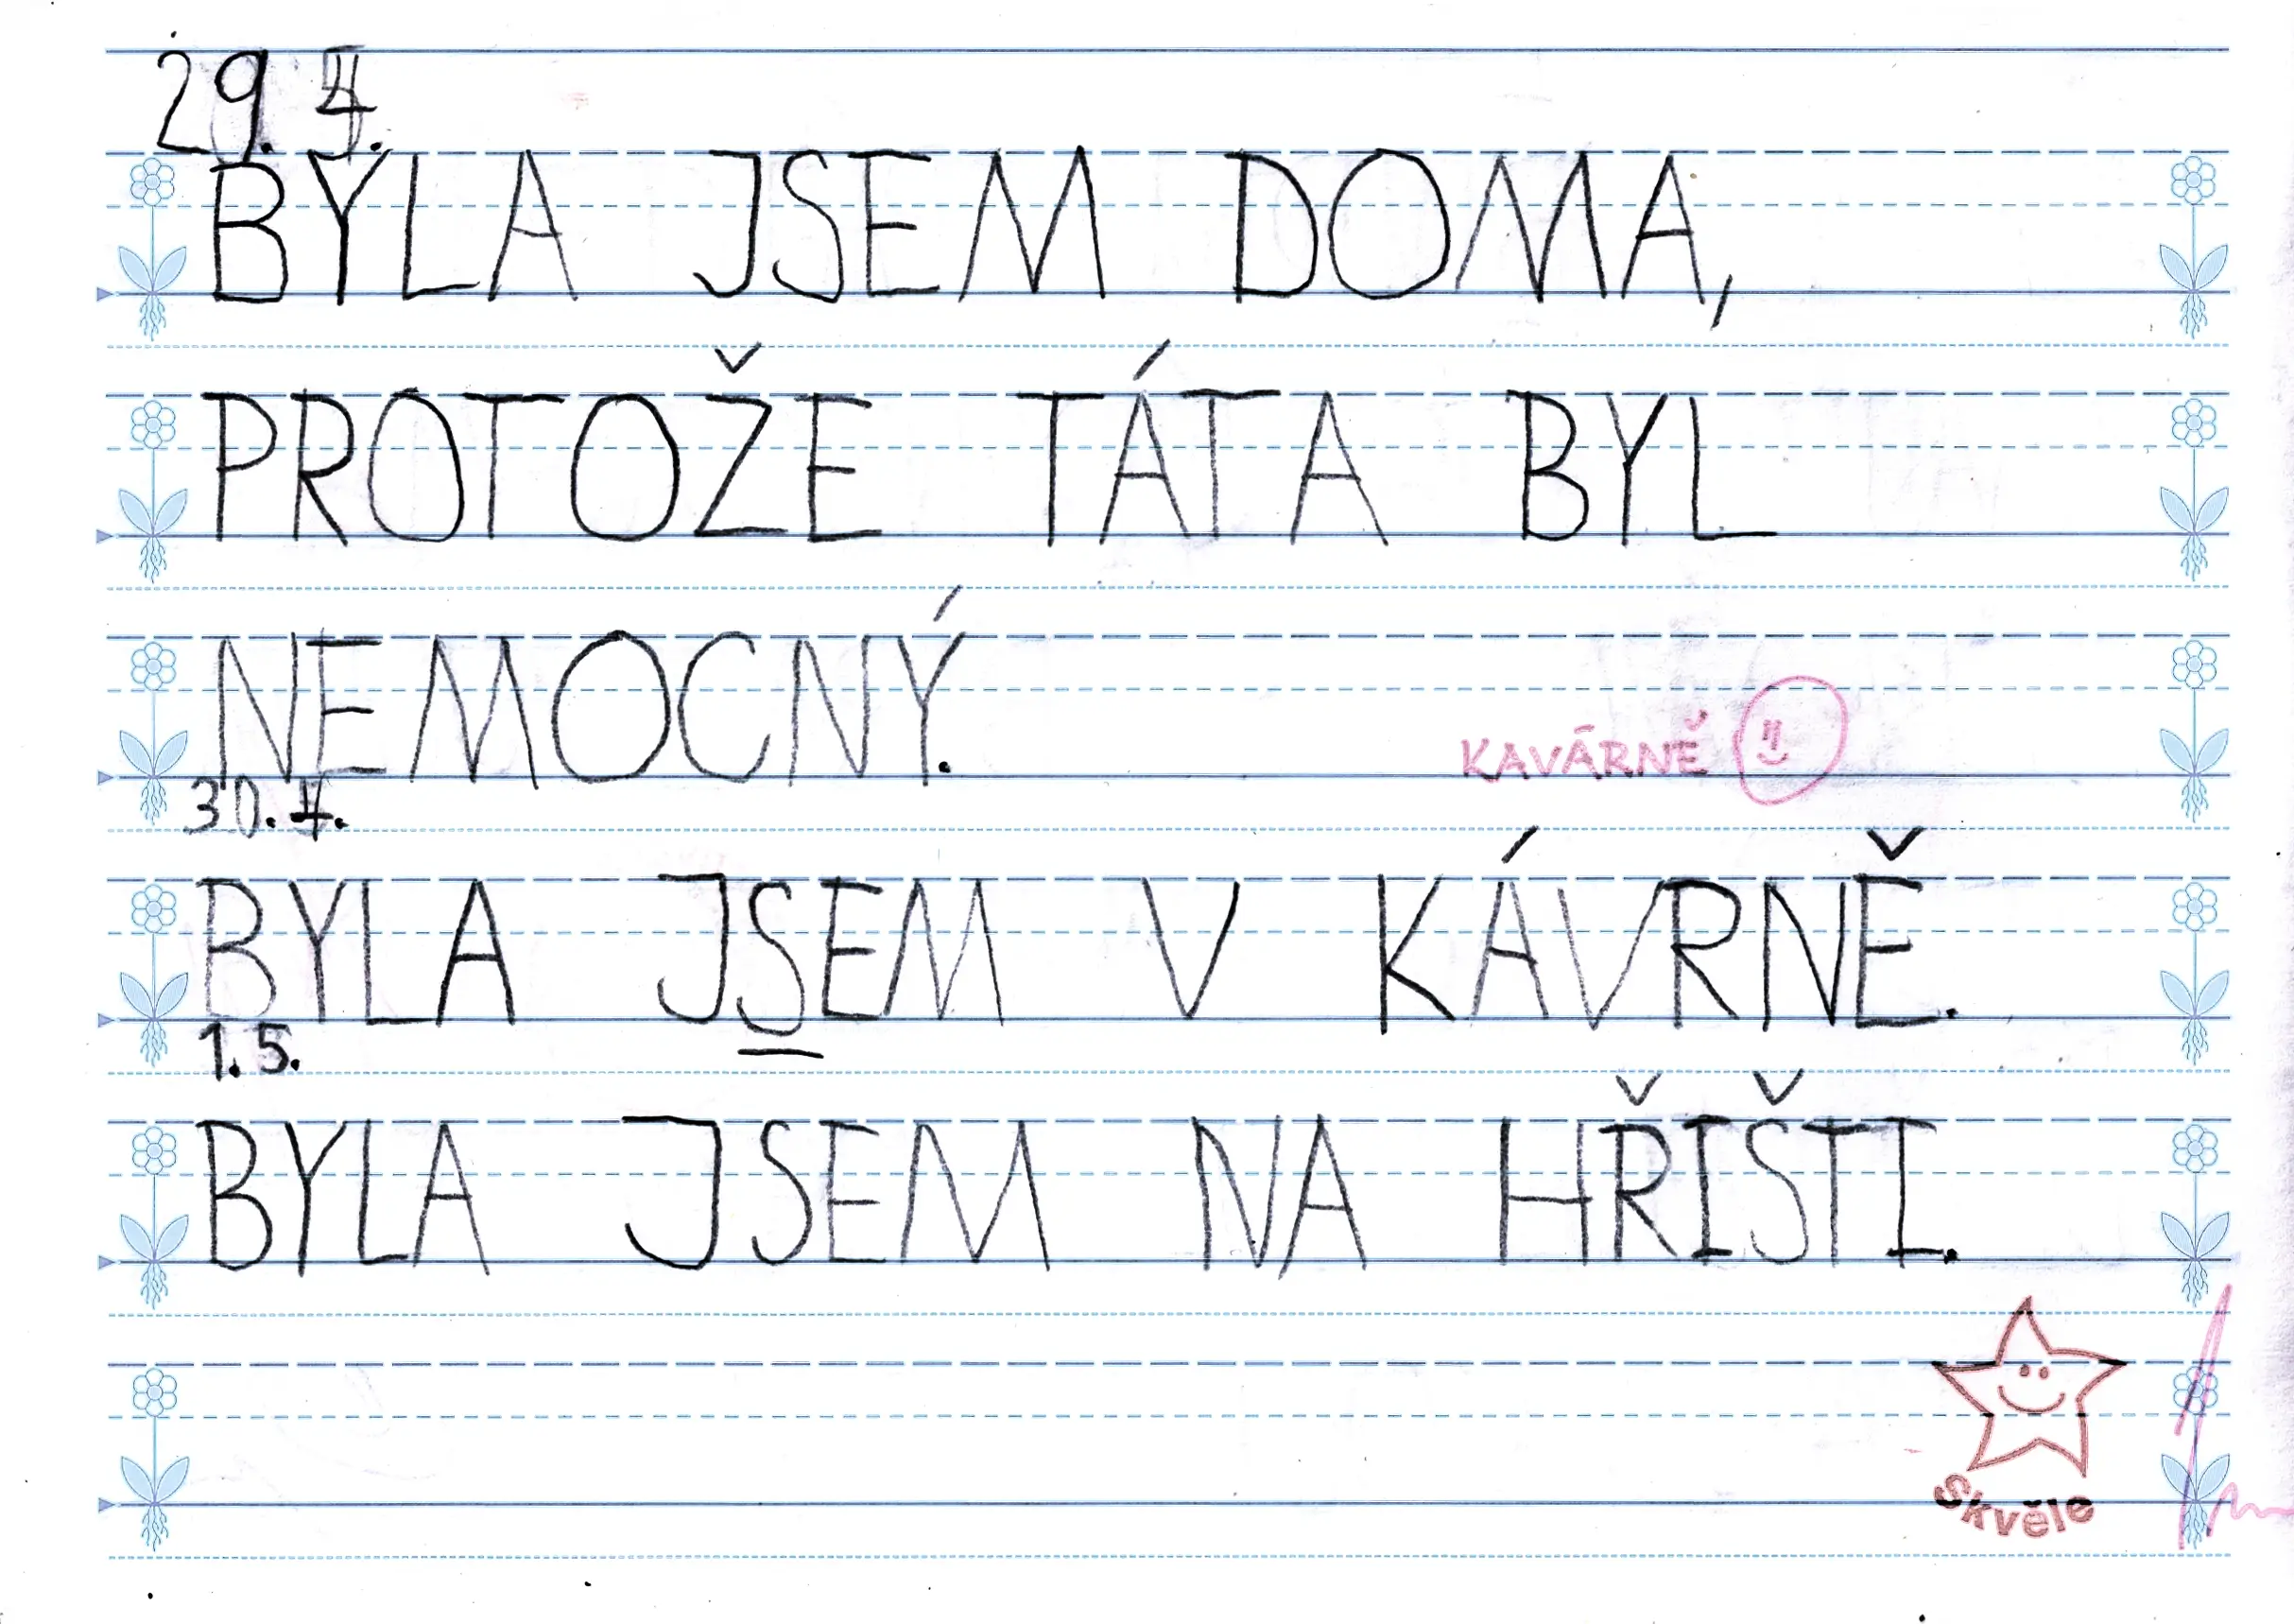 29. 4.
BYLA JSEM DOMA,
PROTOŽE TÁTA BYL
NEMOCNÝ.
KAVÁRNĚ
30. 4.
BYLA JSEM V KÁVRNĚ.
1. 5.
BYLA JSEM NA HŘIŠTI.
Skvěle